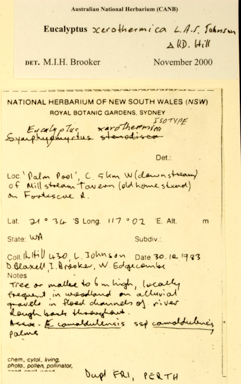 Australian National Herbarium (CANB)
Eucalyptus xerothermica L.A.S. Johnson
& K.D. Hill
DET. M.I.H. Brooker November 2000
NATIONAL HERBARIUM OF NEW SOUTH WALES (NSW)
ROYAL BOTANIC GARDENS, SYDNEY
ISOTYPE
Eucalyptus xerothermica
Det.:
Loc 'Palm Pool', c. 5km W (downstream)
of Millstream Tavern (old homestead)
on Fortescue R.
Lat. 21° 34 'S Long. 117° 02 'E. Alt. m
State: WA Subdiv.:
Coll. K. Hill 430, L. Johnson Date 30.10.1983
D. Blaxell, I. Brooker, W. Edgecombe
Notes
Tree or mallee to 6m high, locally
frequent in woodland on alluvial
gravels in flood channels of river
Rough bark throughout.
Assoc. E. camaldulensis ssp camaldulensis,
palms
chem, cytol, living,
photo, pollen, pollinator,
Dupl FRI, PERTH